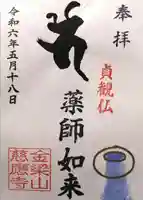 奉拝
貞観仏
薬師如来
令和六年五月十八日
金梁山
慈恩寺